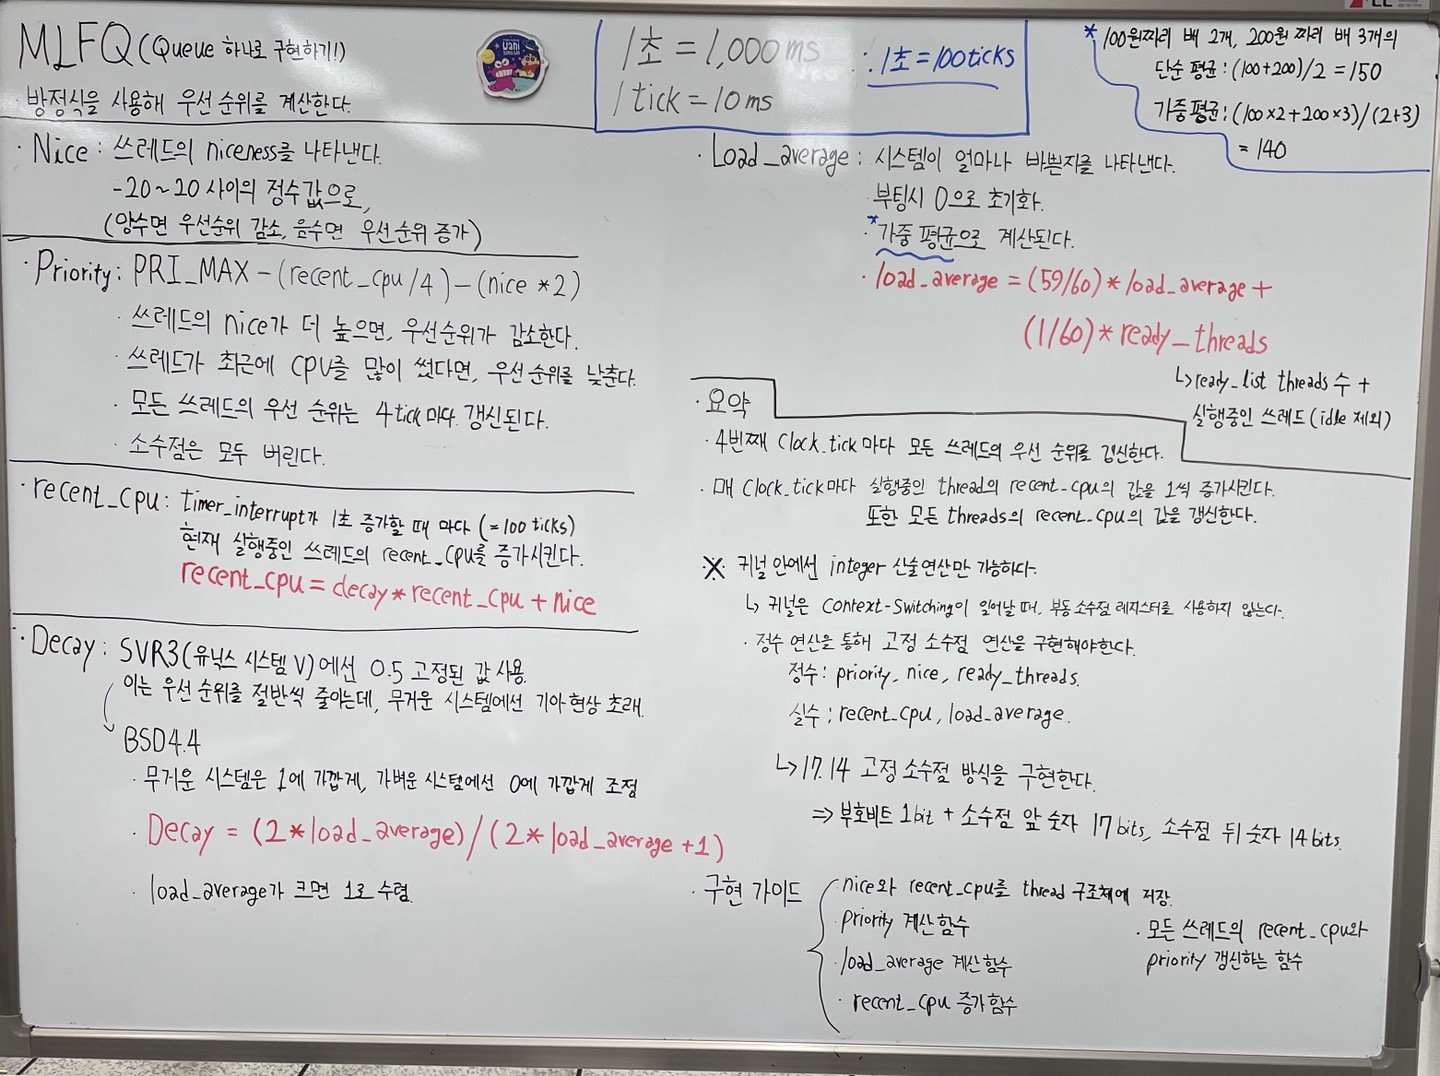 MLFQ (Queue 하나로 구현하기!)
방정식을 사용해 우선 순위를 계산한다.
1초 = 1,000ms ∴ 1초 = 100ticks
1 tick = 10ms
* 100원짜리 배 2개, 200원 짜리 배 3개의
단순 평균 : (100+200)/2 = 150
가중 평균 : (100×2+200×3)/(2+3)
= 140
· Nice : 쓰레드의 niceness를 나타낸다.
-20~20 사이의 정수값으로,
(양수면 우선순위 감소, 음수면 우선순위 증가)
· Priority : PRI_MAX - (recent_cpu/4) - (nice *2)
· 쓰레드의 nice가 더 높으면, 우선순위가 감소한다.
· 쓰레드가 최근에 CPU를 많이 썼다면, 우선순위를 낮춘다.
· 모든 쓰레드의 우선 순위는 4tick 마다 갱신된다.
· 소수점은 모두 버린다.
· recent_cpu : timer_interrupt가 1초 증가할 때 마다 (=100 ticks)
현재 실행중인 쓰레드의 recent_cpu를 증가시킨다.
recent_cpu = decay * recent_cpu + nice
· Decay : SVR3(유닉스 시스템 V)에선 0.5 고정된 값 사용.
이는 우선 순위를 절반씩 줄이는데, 무거운 시스템에선 기아 현상 초래.
↳ BSD4.4
· 무거운 시스템은 1에 가깝게, 가벼운 시스템에선 0에 가깝게 조정
· Decay = (2*load_average)/(2*load_average +1)
· load_average가 크면 1로 수렴.
· Load_average : 시스템이 얼마나 바쁜지를 나타낸다.
부팅시 0으로 초기화.
· *가중 평균으로 계산된다.
· load_average = (59/60)*load_average +
(1/60)* ready_threads
↳ ready_list threads 수 +
실행중인 쓰레드 (idle 제외)
· 요약
· 4번째 Clock_tick 마다 모든 쓰레드의 우선 순위를 갱신한다.
· 매 Clock_tick마다 실행중인 thread의 recent_cpu의 값을 1씩 증가시킨다.
또한 모든 threads의 recent_cpu의 값을 갱신한다.
※ 커널 안에서 integer 산술연산만 가능하다.
↳ 커널은 Context-Switching이 일어날 때, 부동 소수점 레지스터를 사용하지 않는다.
· 정수 연산을 통해 고정 소수점 연산을 구현해야한다.
정수 : priority, nice, ready_threads.
실수 : recent_cpu, load_average.
↳ 17.14 고정 소수점 방식을 구현한다.
⇒ 부호비트 1bit + 소수점 앞 숫자 17bits, 소수점 뒤 숫자 14bits.
· 구현 가이드
· nice와 recent_cpu를 thread 구조체에 저장.
· priority 계산 함수
· load_average 계산함수
· recent_cpu 증가 함수
· 모든 쓰레드의 recent_cpu와
priority 갱신하는 함수